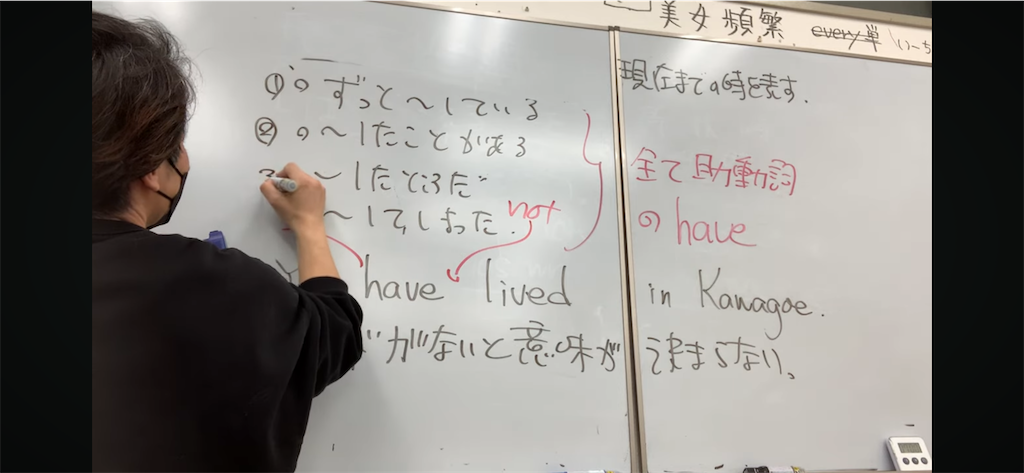 美女頻繁 every 単
現在までの時を表す.
① の ずっと〜している
② の 〜したことがある
〜したところだ
〜してしまった.
not
全て助動詞
の have
have lived in Kawagoe.
がないと意味が決まらない。